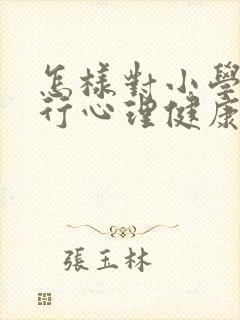 怎樣對小學
行心理健康
張玉林